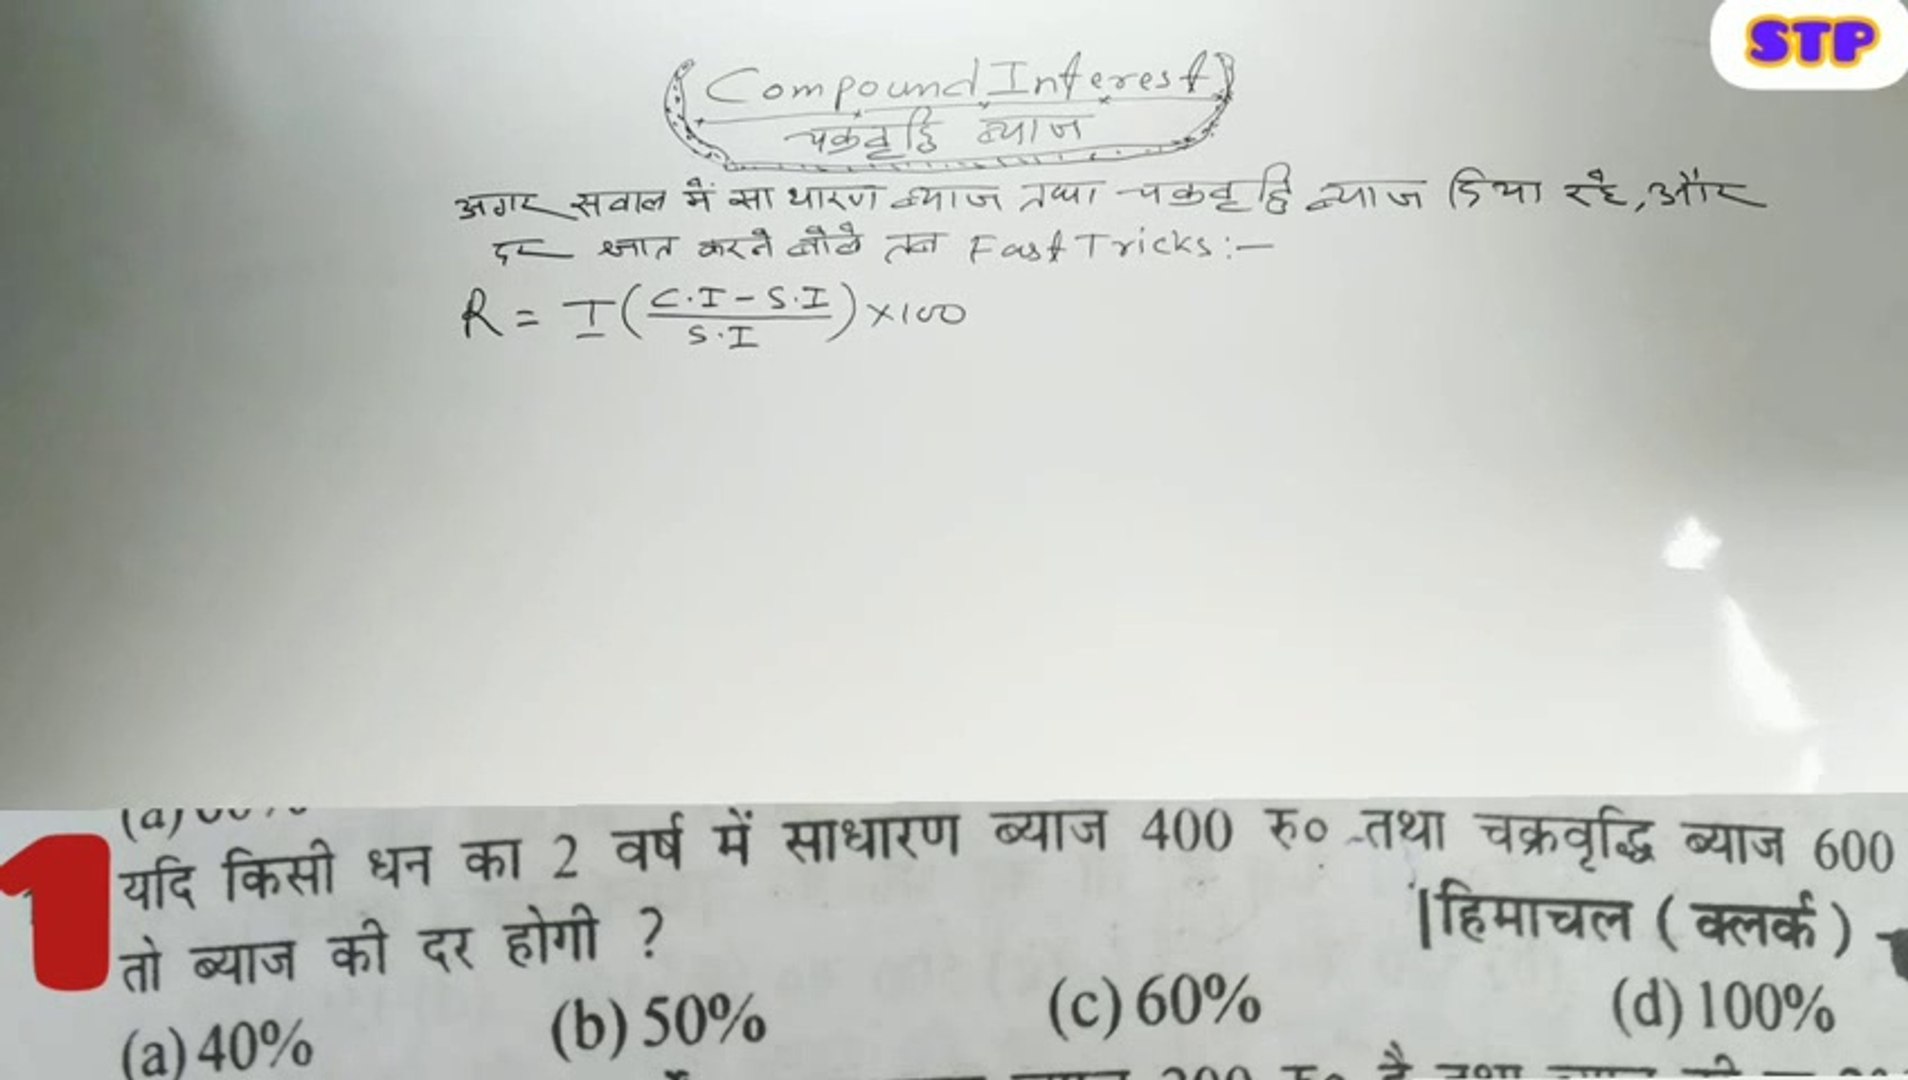 STP
Compound Interest
चक्रवृद्धि ब्याज
अगर सवाल में साधारण ब्याज तथा चक्रवृद्धि ब्याज दिया रहे, और
दर ज्ञात करने बोले तब Fast Tricks:-
R = T(C.I - S.I / S.I) × 100
1
यदि किसी धन का 2 वर्ष में साधारण ब्याज 400 रु० तथा चक्रवृद्धि ब्याज 600
तो ब्याज की दर होगी ?
|हिमाचल ( क्लर्क )
(a) 40% (b) 50% (c) 60% (d) 100%